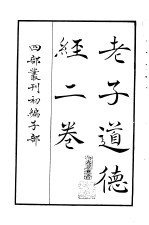 老子道德
經二卷
四部叢刊初編子部